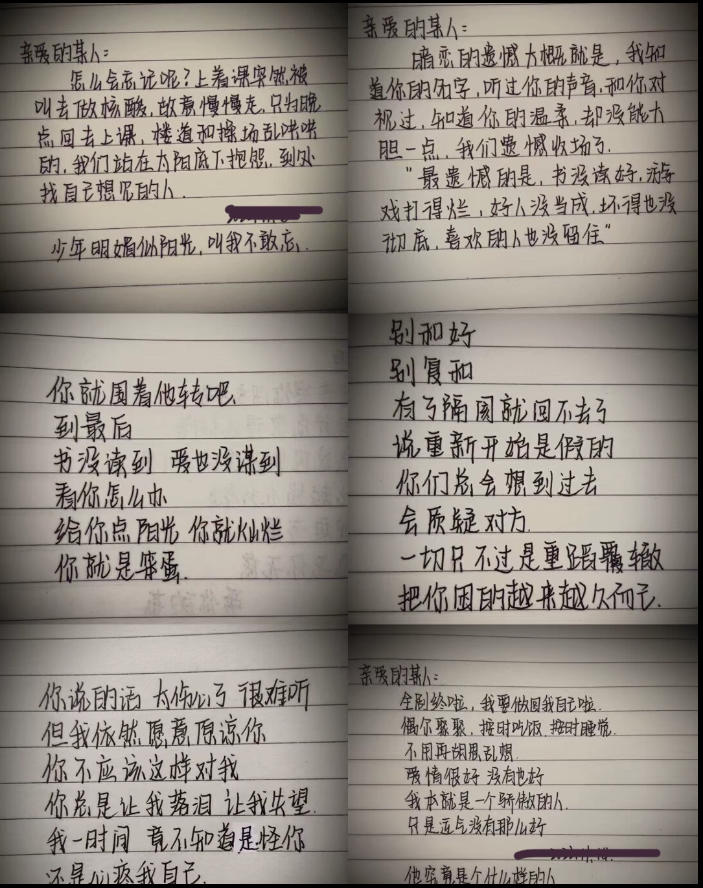 亲爱的某人:
怎么会忘记呢?上着课突然被
叫去做核酸,故意慢慢走,只为晚
点回去上课,楼道和操场乱哄哄
的,我们站在太阳底下抱怨,到处
找自己想见的人.
少年明媚似阳光,叫我不敢忘.
亲爱的某人:
暗恋的遗憾大概就是,我知
道你的名字,听过你的声音,和你对
视过,知道你的温柔,却没能大
胆一点,我们遗憾收场了.
"最遗憾的是,书没读好,游
戏打得烂,好人没当成,坏得也没
彻底,喜欢的人也没留住"
你就围着他转吧
到最后
书没读到 爱也没谋到
看你怎么办
给你点阳光 你就灿烂
你就是笨蛋.
别和好
别复和
有了隔阂就回不去了
说重新开始是假的
你们总会想到过去
会质疑对方
一切只不过是重蹈覆辙
把你困的越来越久而已.
你说的话 太伤心了 很难听
但我依然愿意原谅你
你不应该这样对我
你总是让我落泪 让我失望.
我一时间 竟不知道是怪你
还是心疼我自己.
亲爱的某人:
全剧终啦,我要做回我自己啦.
偶尔聚聚,按时吃饭,按时睡觉.
不用再胡思乱想.
爱情很好 没有也好
我本就是一个骄傲的人.
只是运气没有那么好
他究竟是个什么样的人